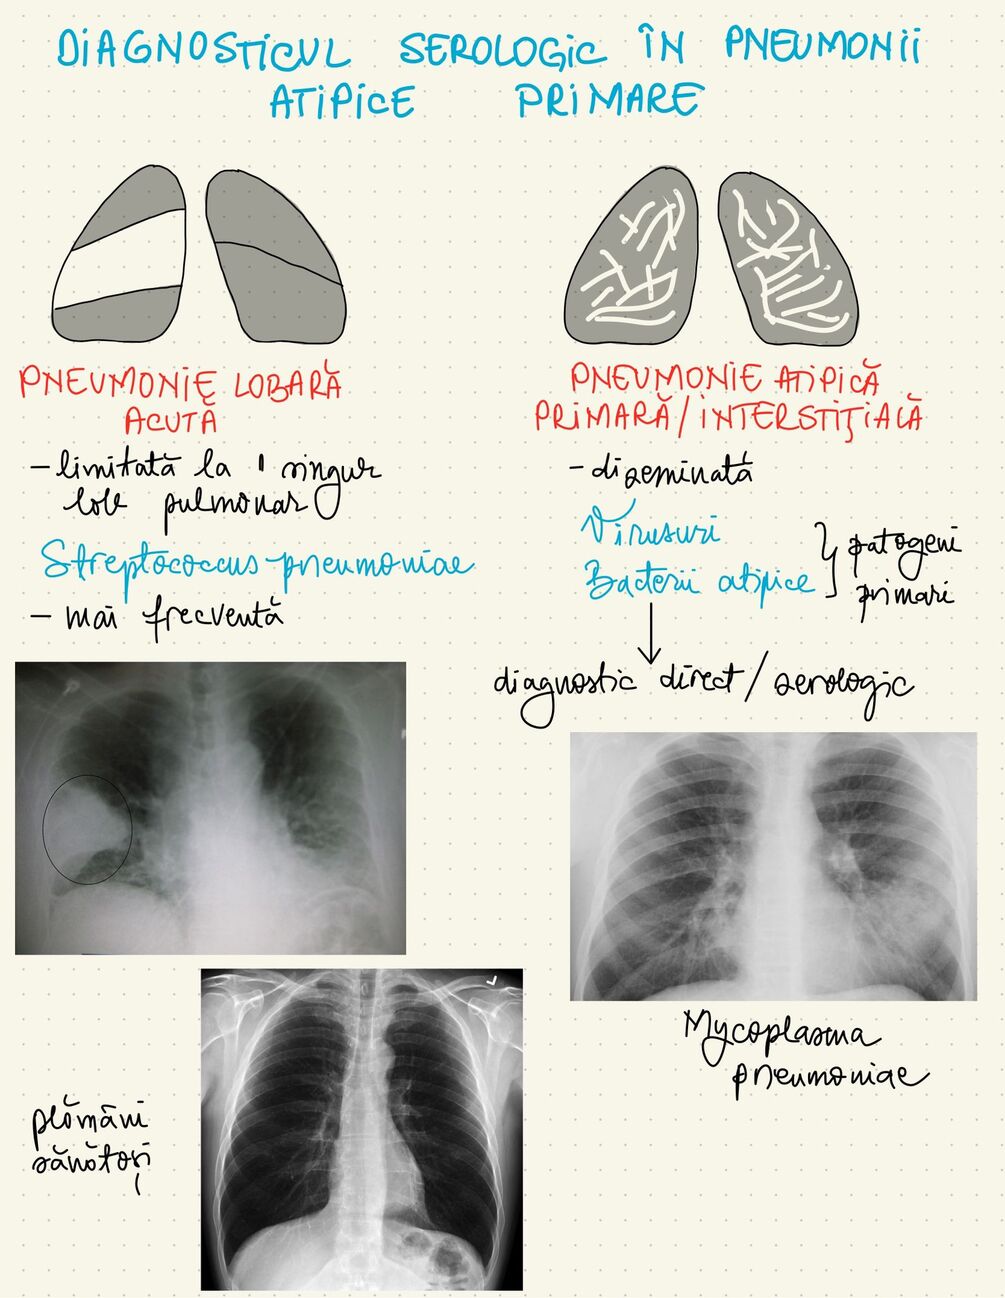 DIAGNOSTICUL SEROLOGIC ÎN PNEUMONII
ATIPICE PRIMARE
PNEUMONIE LOBARĂ
ACUTĂ
- limitată la 1 singur
lob pulmonar
Streptococcus pneumoniae
- mai frecventă
PNEUMONIE ATIPICĂ
PRIMARĂ / INTERSTIȚIALĂ
- diseminată
Virusuri
Bacterii atipice
} patogeni
primari
diagnostic direct / serologic
Mycoplasma
pneumoniae
plămâni
sănătoși